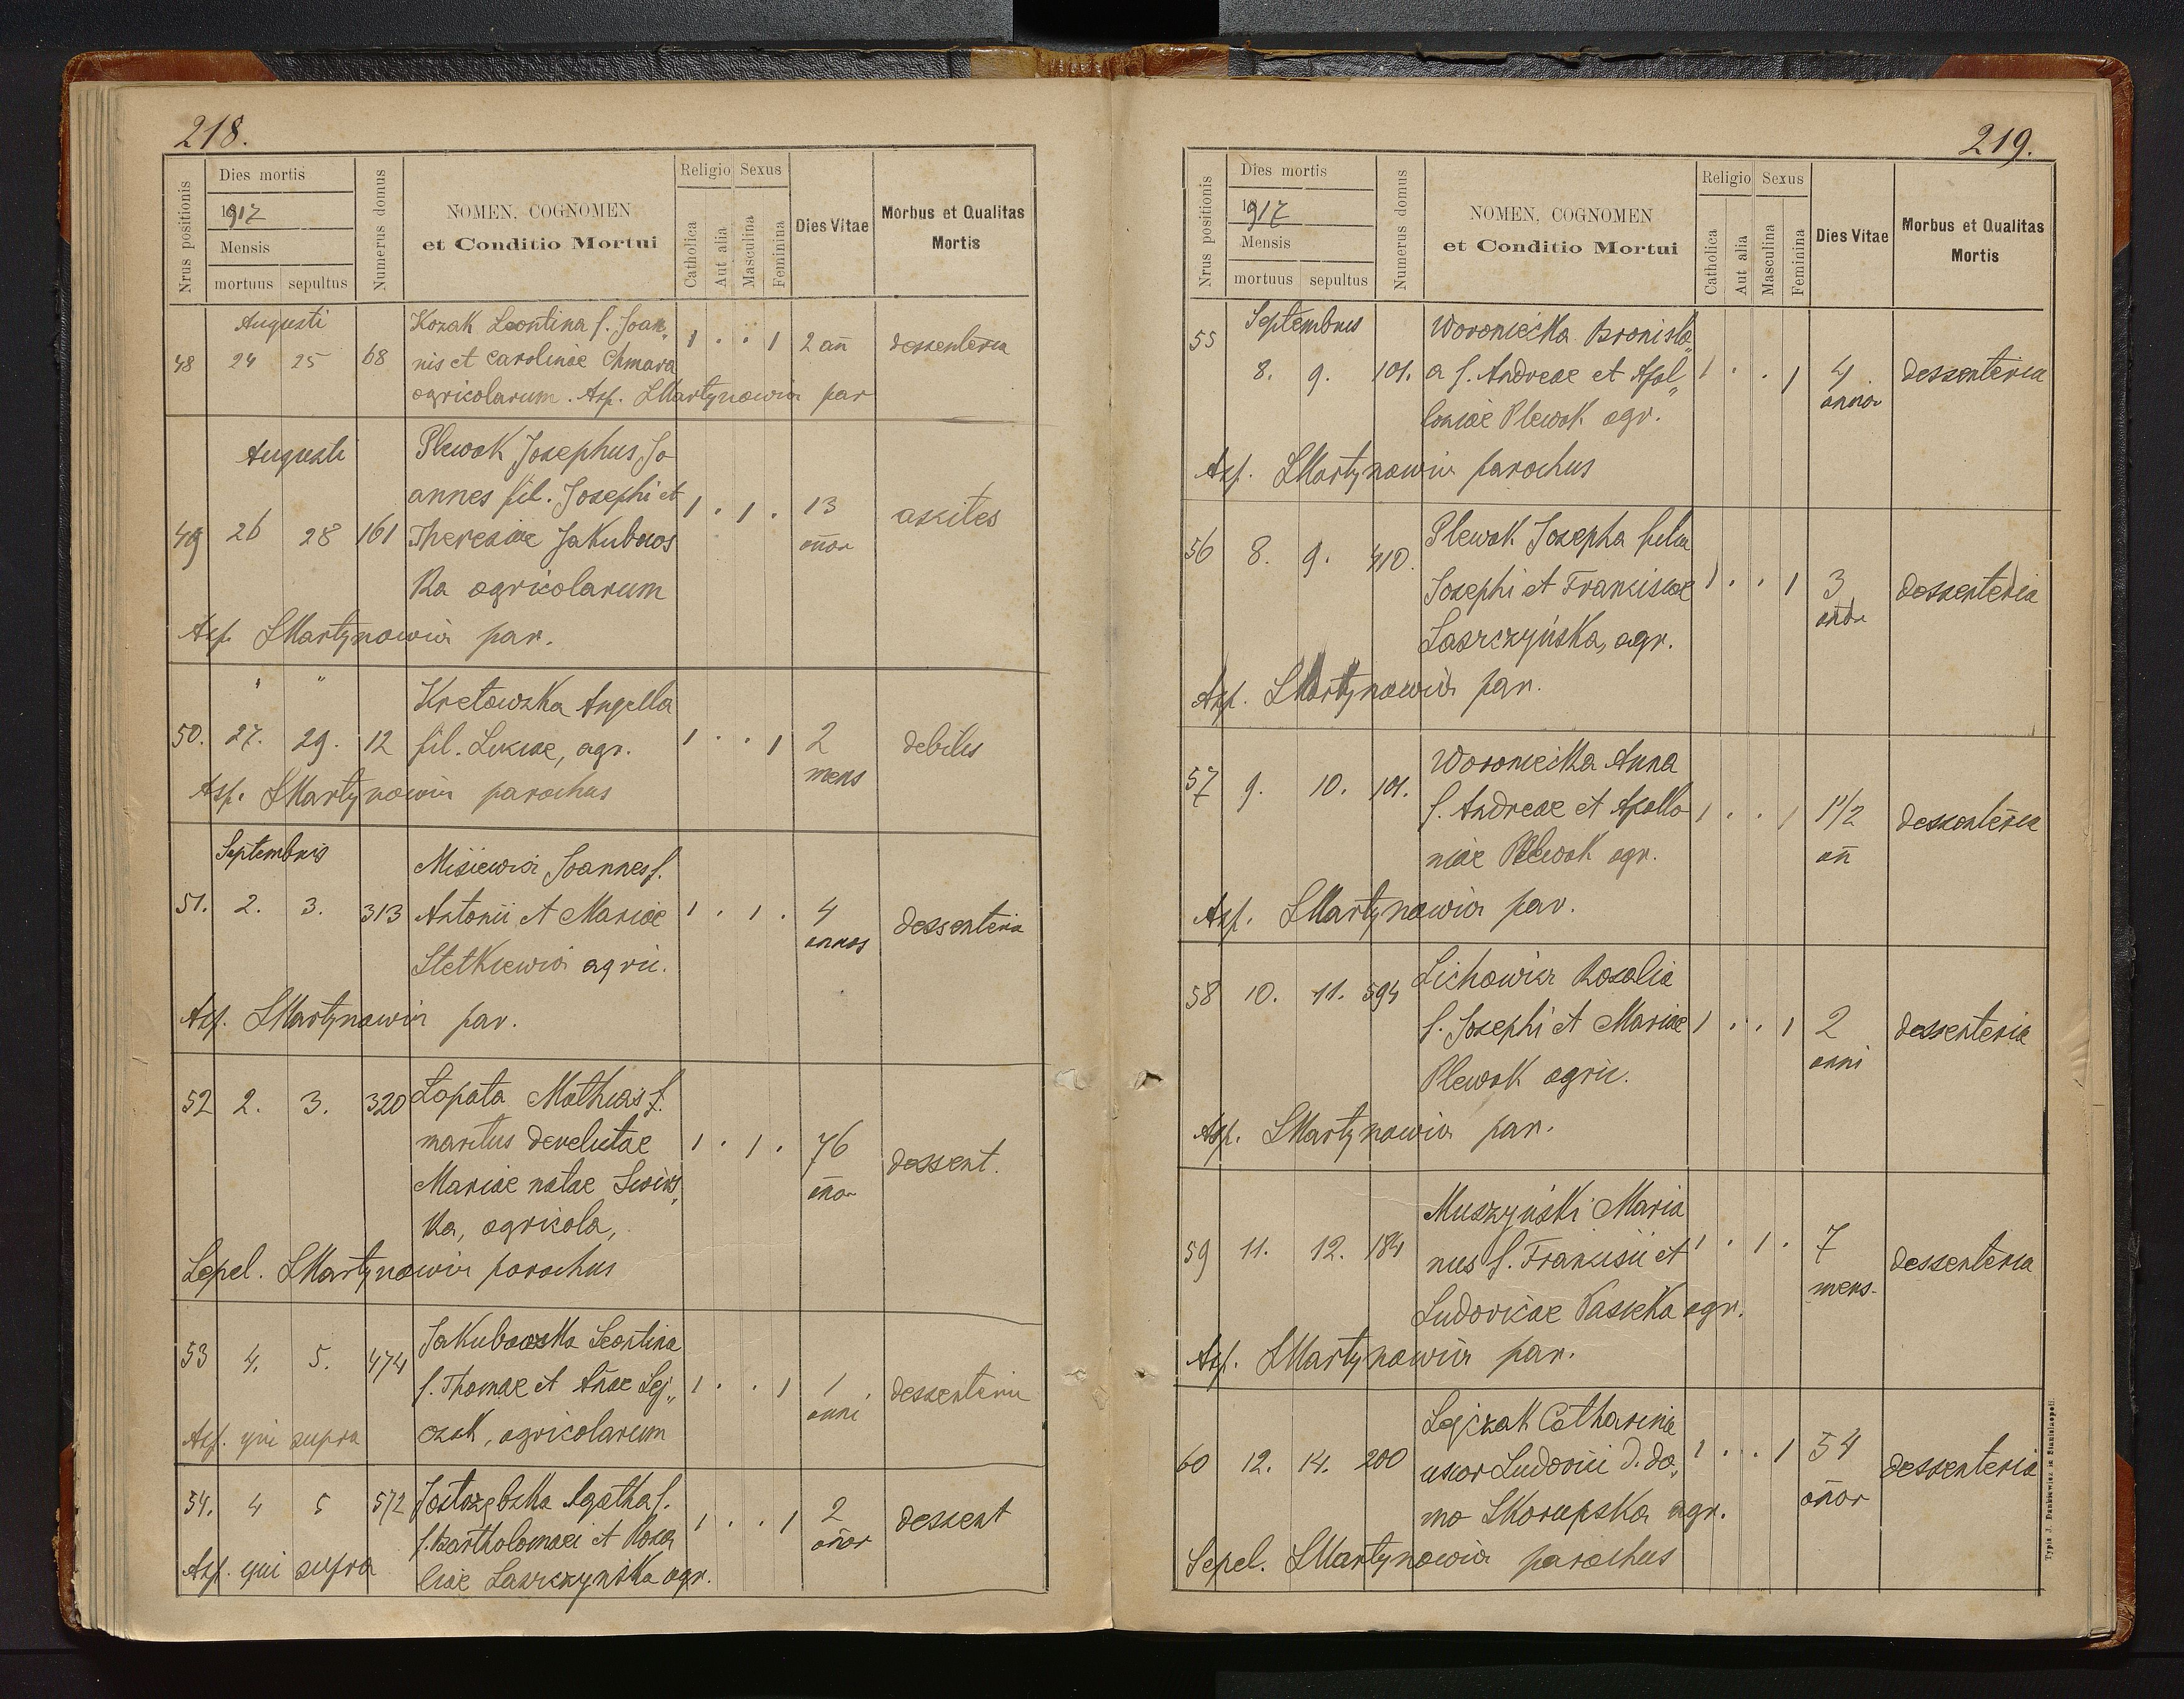 218.
Nrus positionis
Dies mortis
1917
Mensis
mortuus sepultus
Numerus domus
NOMEN, COGNOMEN
et Conditio Mortui
Religio Sexus
Catholica
Aut alia
Masculina
Feminina
Dies Vitae
Morbus et Qualitas
Mortis
Augusti
Kozak Leontina f. Joan„
48 24 25 68 nis et Carolinae Chmara 1 . . 1 2 an̄ dessenteria
agricolarum. Asp. LMartynowicz par
Augusti
Plewak Josephus, Jo
annes fil. Josephi et
49 26 28 161 Theresiae Jakubows 1 . 1 . 13 askites
ka agricolarum
an̄or
Asp. LMartynowicz par.
" "
Kretowska Angella
50. 27. 29. 12 fil. Luciae, agr. 1 . . 1 2 debilis
mens
Asp. LMartynowicz parochus
Septembris
Misiewicz Joannes f.
51. 2. 3. 313 Antonii et Mariae 1 . 1 . 4 dessenteria
annos
Stetkiewicz agric.
Asp. LMartynowicz par.
52 2. 3. 320 Lopata Mathias f.
maritus derelictae 1 . 1 . 76 dessent.
Mariae natae Swirs„
an̄or
ka, agricola,
Sepel. LMartynowicz parochus
Jakubowska Leontina
53 4. 5. 474
f. Thomae et An̄ae Lej„ 1 . . 1 1 dessenteria
anni
czak, agricolarum
Asp. qui supra
54. 4 5 572 Jastrzębska Agatha f.
f. Bartholomaei et Rosa 1 . . 1 2 dessent
an̄or
liae Laszczyńska agr.
Asp. qui supra
219.
Nrus positionis
Dies mortis
1917
Mensis
mortuus sepultus
Numerus domus
NOMEN, COGNOMEN
et Conditio Mortui
Religio Sexus
Catholica
Aut alia
Masculina
Feminina
Dies Vitae
Morbus et Qualitas
Mortis
Septembris
55 Woroniecka Bronisla„
8. 9. 101. a f. Andreae et Apol„ 1 . . 1 4 dessenteria
annor
loniae Plewak agr.
Asp. LMartynowicz parochus
Plewak Josepha filia
56 8. 9. 410.
Josephi et Franciscae 1 . . 1 3 dessenteria
an̄or
Laszczyńska, agr.
Asp. LMartynowicz par.
Woroniecka Anna
57 9. 10. 101.
f. Andreae et Apollo 1 . . 1 1 1/2 dessenteria
niae Plewak agr. an̄
Asp. LMartynowicz par.
Lichowicz Rosalia
58 10. 11. 594
f. Josephi et Mariae 1 . . 1 2 dessenteria
anni
Plewak agric.
Asp. LMartynowicz par.
Muszyński Maria
59 11. 12. 184 nus f. Francisci et 1 . 1 . 7 dessenteria
mens.
Ludovicae Pasieka agr.
Asp. LMartynowicz par.
Lejczak Catharina
60 12. 14. 200 uxor Ludovici d. do„ 1 . . 1 54 dessenteria
an̄or
mo Skorupska agr.
Sepel. LMartynowicz parochus
Typis J. Dankiewicz in Stanislaopoli.